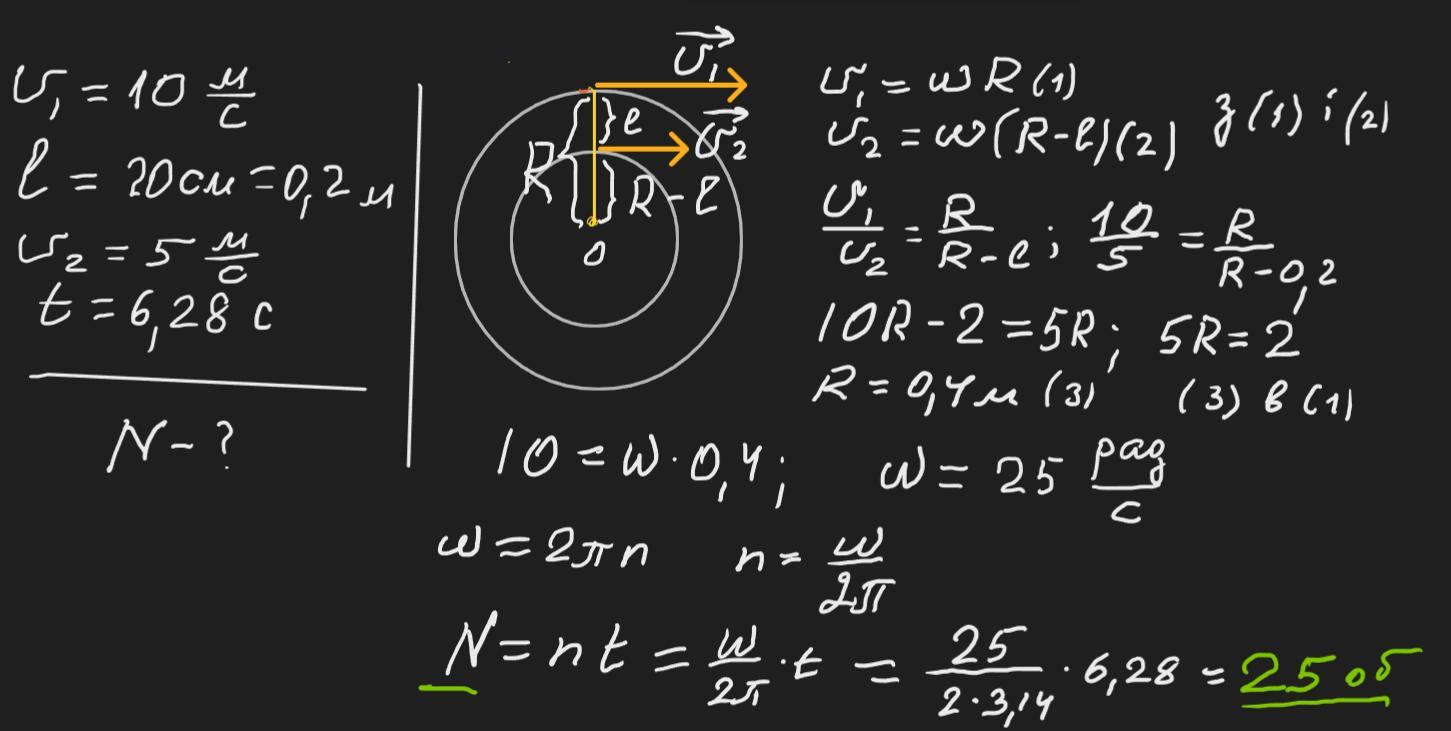 υ₁ = 10 м/с
ℓ = 20 см = 0,2 м
υ₂ = 5 м/с
t = 6,28 с
N - ?
υ₁
ℓ
υ₂
R
R - ℓ
O
υ₁ = ωR (1)
υ₂ = ω(R-ℓ) (2) з (1) і (2)
υ₁/υ₂ = R/(R-ℓ); 10/5 = R/(R-0,2)
10R - 2 = 5R; 5R = 2
R = 0,4 м (3) (3) в (1)
10 = ω · 0,4; ω = 25 рад/с
ω = 2πn n = ω/2π
N = nt = ω/2π · t = 25/(2·3,14) · 6,28 = 25 об